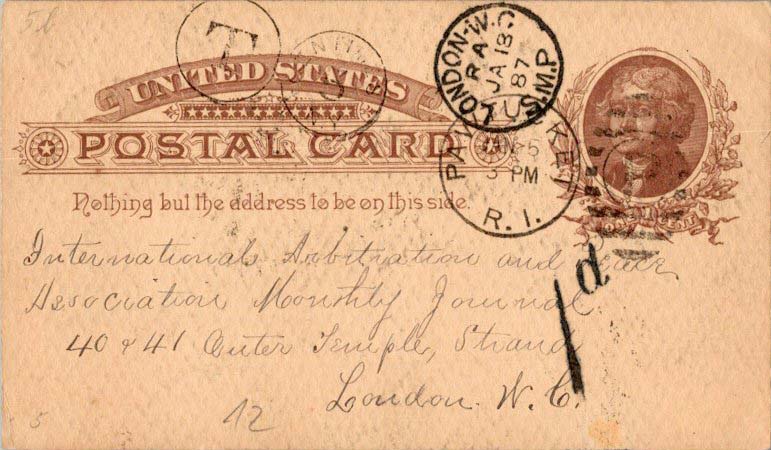 5b
T
LONDON·W.C
RA
JA 18
87
S.M.P
UNITED STATES
POSTAL CARD
PAW TUC KET
JAN 5
3 PM
R. I.
Nothing but the address to be on this side.
International Arbitration and
Association Monthly Journal
1d
40 & 41 Outer Temple, Strand
London. W. C.
12
5